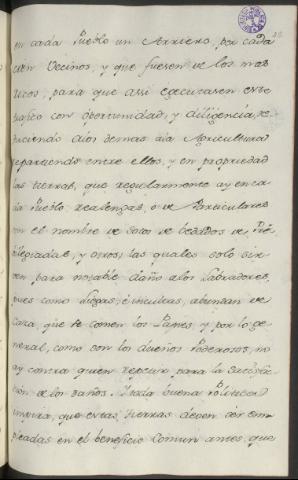 en cada Pueblo un Arriero, por cada
cien Vecinos, y que fuesen de los mas
ricos, para que assi executasen este
trafico con oportunidad, y diligencia, re-
duciendo alos demas ala Agricultura
repartiendo entre ellos, y en propriedad
las tierras, que regularmente ay en ca-
da Pueblo realengas, ó de Particulares
con el nombre de Sotos de bedados de Pri-
vilegiadas, y otros, las quales solo sir-
ven para notable daño alos Labradores,
pues como incultas, abundan de
Caza, que se comen los Panes, y por lo ge-
neral, como son los dueños Poderosos, no
ay contra quien repetir para la satisfac-
cion de los daños. Toda buena Politica
que estas tierras deven ser em-
pleadas en el beneficio comun antes, que